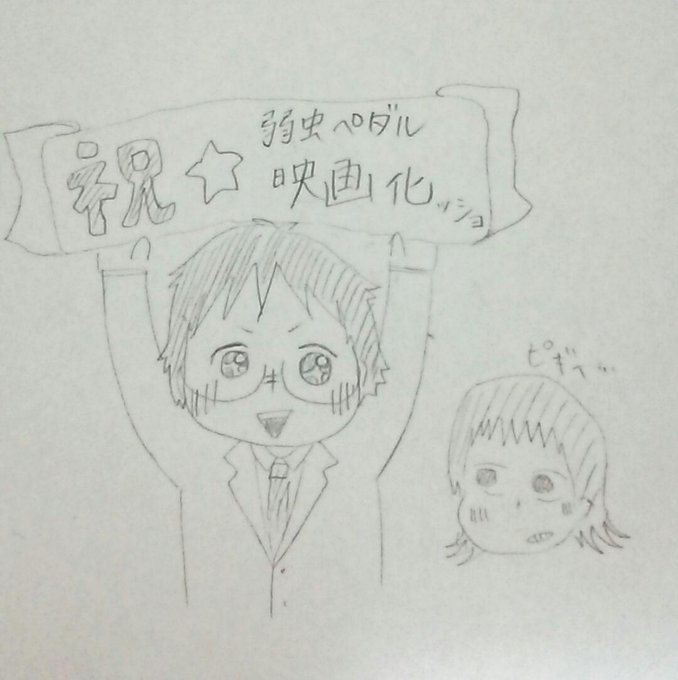 祝☆
弱虫ペダル
映画化ッショ
ピギィ…